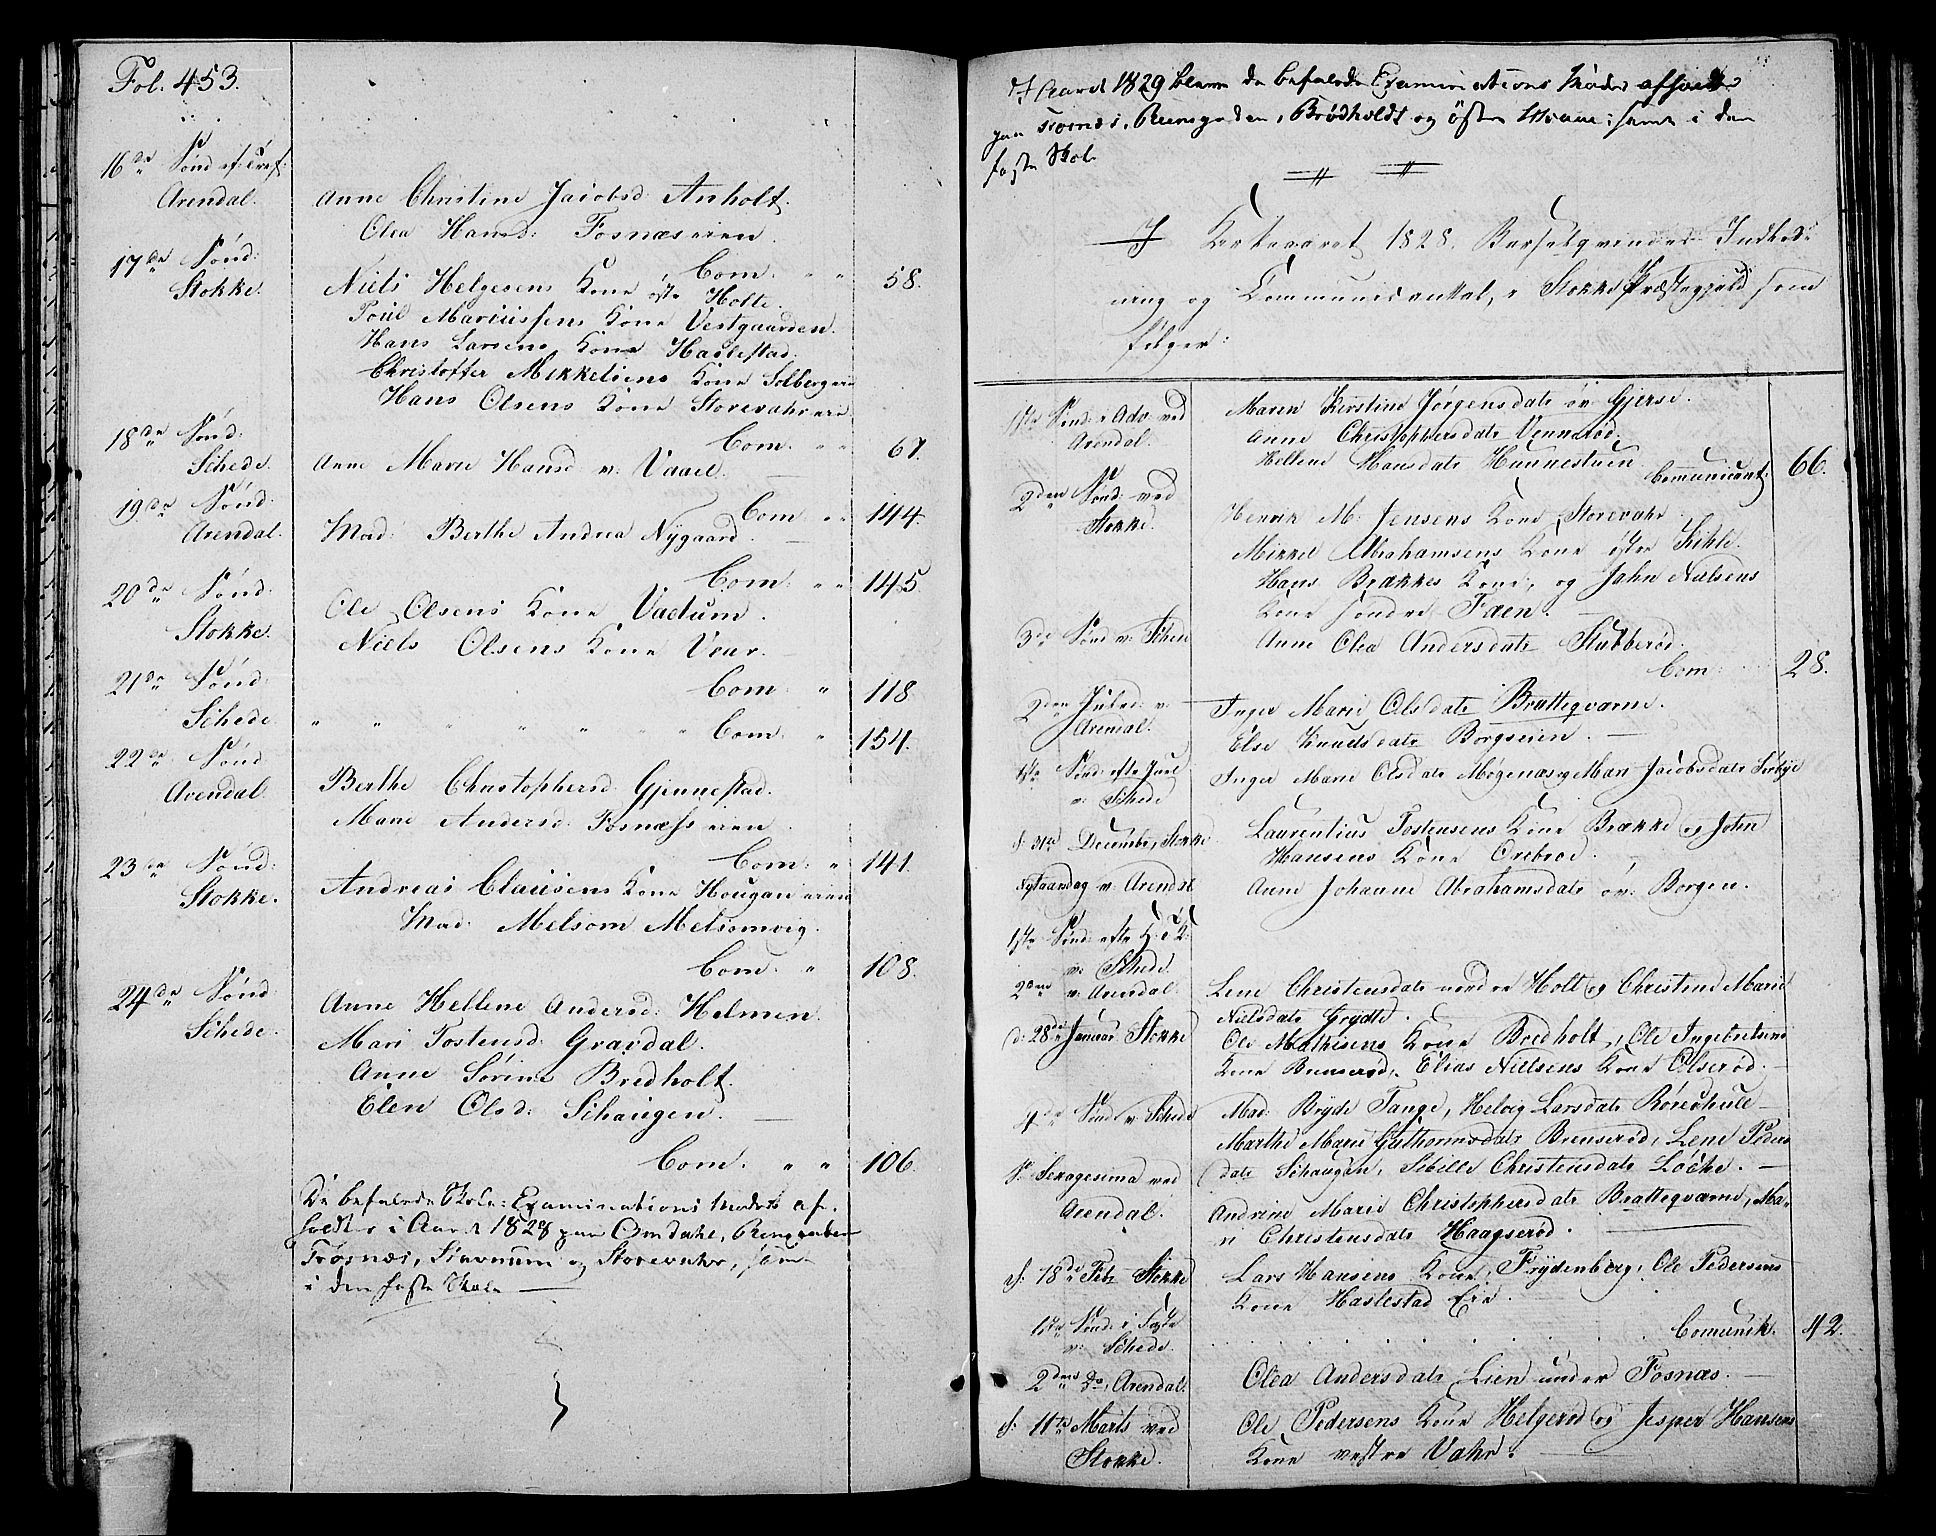 Fol. 453.
16de Sønd. ef. Tref.
Arendal.
Anne Christine Jacobsd. Anholt.
Olea Hansd: Fosnæs eien.
Com. " " 58.
17de Sønd:
Stokke.
Niels Helgesens Kone østre Holte.
Poul Mariussens Kone Vestgaarden.
Hans Larsens Kone Haslestad.
Christoffer Mikkelsens Kone Solberg eie
Hans Olsens Kone Storevahr eie
Com. " " 67.
18de Sønd:
Schede.
Anne Marie Hansd v: Vaael. —
Com. " " 144.
19de Sønd:
Arendal.
Mad: Berthe Andrea Nygaard. —
Com: " " 145
20de Sønd:
Stokke.
Ole Olsens Kone Vaetum.
Niels Olsens Kone Vear. —
Com: " 118
21de Sønd:
Schede
" " " " " " " Com: " 154.
22de Sønd
Arendal
Berthe Christophersd. Gjennestad.
Marie Andersd: Fosnæss eien.
Com: " 141.
23de Sønd:
Stokke.
Andreas Clausens Kone Hougan eien
Mad: Melsom Melsomvig.
Com. " 108.
24de Sønd
Schede.
Anne Hellene Andersd: Holmen.
Mari Tostensd: Gravdal.
Anne Sørine Bredholt.
Elen Olsd: Schaugen. —
Com. " " 106.
De befalede Skole-Examinations Møder af-
holdtes i Aaret 1828 paa Omdahl,
Trosnæs, Stavnum og Storevahr, samt
i den faste Skole —
I Aaret 1829 bleve de befalede Examinations Møder afholdte
paa Trosnæs, Brødholdt og østre samt i den
faste Skole
I Kirkeaaret 1828, Barselqvinders Indled-
ning og Communicantal, i Stokke Præstegjæld som
følger:
1ste Sønd. i Adv. ved
Arendal.
Maren Kirstine Jørgensdatr øv. Gjersø.
Anne Christophersdatr Vennerød.
Hellene Hansdatr Hunnestuen.
Comunicant: 66.
2den Sønd: ved
Stokke.
Henrik M. Jensens Kone Storevahr.
Mikkel Abrahamsens Kone østre
Hans Brækkes Kone, og Jahn Nielsens
Kone søndre Faen. —
3de Sønd v: Schede
Anne Olea Andersdatr Stubberød.
Com: 28.
2den Juled: v:
Arendal.
Inger Marie Olsdatr Bratteqvarne.
Else Knudsdatr Borgseien. —
1ste Sønd: efter Juul
v: Schede
Inger Marie Olsdatr og Mari Jacobsdatr
d: 31te December, Stokke
Laurentius Tostensens Kone Brække og John
Hansens Kone Orebrød. —
Nytaarsdag v: Arendal
Anne Johanne Abrahamsdatr øv. Borgen.
1ste Sønd: efter H. 3 K.
v: Schede.
2den v: Arendal
Lene Christensdatr nordre Holt og Christine Marie
Nielsdatr Grydte.
d: 28de Januar Stokke
Ole Mathisens Kone Bredholt, Ole Ingebretsens
Kone Elias Nielsens Kone Olserød. —
4de Sønd v: Schede
Mad: Bryde Tange, Helvig Larsdatr Røreschule —
Marthe Marie Guthormsdatr Brenserød, Lene Peders
datr Schaugen, Sibille Christensdatr Løcke. —
S. Sexagesima ved
Arendal.
Andrine Marie Christophersdatr Bratteqvarne, Ma-
ri Christensdatr Haagserød.
d: 18de Feb: Stokke
Lars Hansens Kone Frydenberg, Ole Pedersens
Kone Haslestad Eie. —
1ste Sønd: i Faste
v: Schede.
Comunik. 42.
2den do, Arendal.
Olea Andersdatr Lien under Fosnæs. —
d: 11te Marts ved
Stokke.
Ole Pedersens Kone Helgerød og Jesper Hansens
Kone vestre Vahr. —